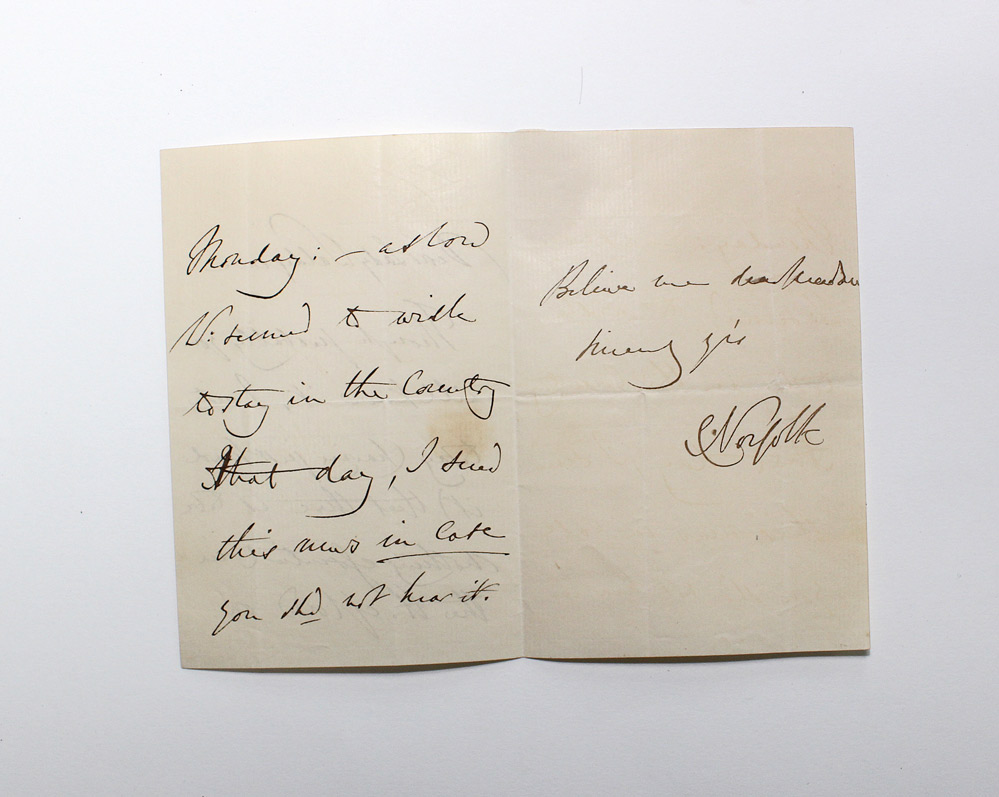 Monday: – as Lord
V: seemed to wish
to stay in the Country
that day, I send
this news in case
you shd not hear it.
Believe me dear Madam
sincerely yrs
Norfolk